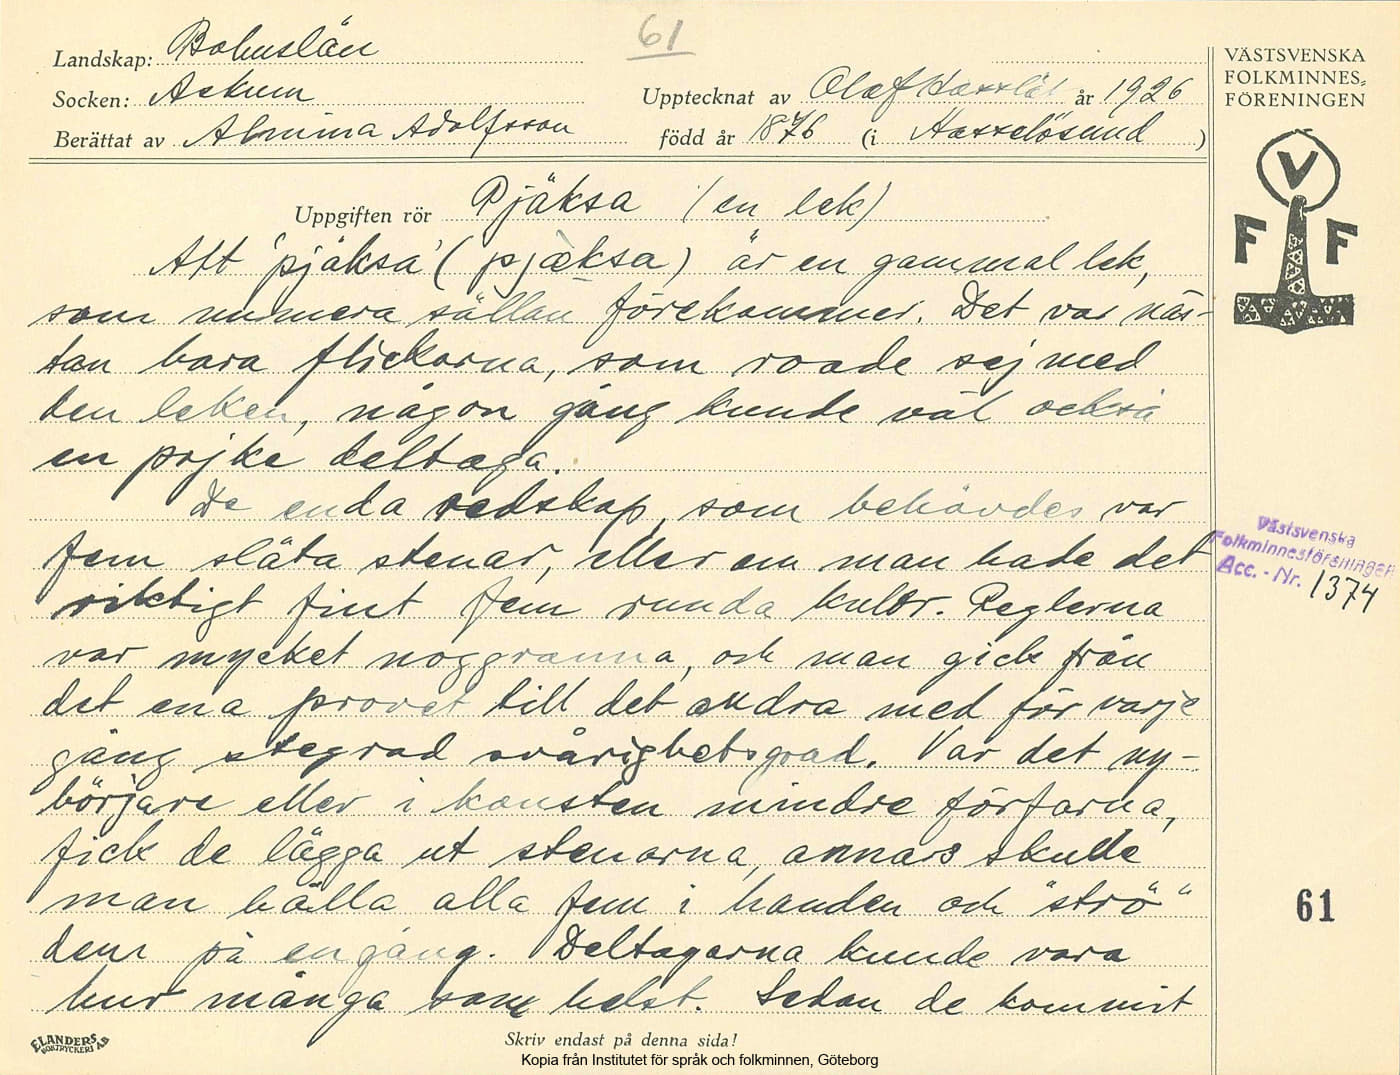 61
Landskap: Bohuslän
Socken: Askum
Upptecknat av Olof Hasslöf år 1926
Berättat av Almina Adolfsson
född år 1876 (i Hasselösund)
VÄSTSVENSKA
FOLKMINNES=
FÖRENINGEN
V
F F
Uppgiften rör Pjäksa (en lek)
Att 'pjäksa' (pjæ̀ksa) är en gammal lek,
som numera sällan förekommer. Det var näs-
tan bara flickorna, som roade sej med
den leken, någon gång kunde väl också
en pojke deltaga.
De enda redskap, som behövdes var
fem släta stenar, eller om man hade det
riktigt fint fem runda kulor. Reglerna
var mycket noggranna, och man gick från
det ena provet till det andra med för varje
gång stegrad svårighetsgrad. Var det ny-
börjare eller i konsten mindre förfarna,
fick de lägga ut stenarna, annars skulle
man hålla alla fem i handen och "strö"
dem på en gång. Deltagarna kunde vara
hur många som helst. Sedan de kommit
Västsvenska
Folkminnesföreningen
Acc. - Nr. 1374
61
ELANDERS
BOKTRYCKERI AB
Skriv endast på denna sida!
Kopia från Institutet för språk och folkminnen, Göteborg